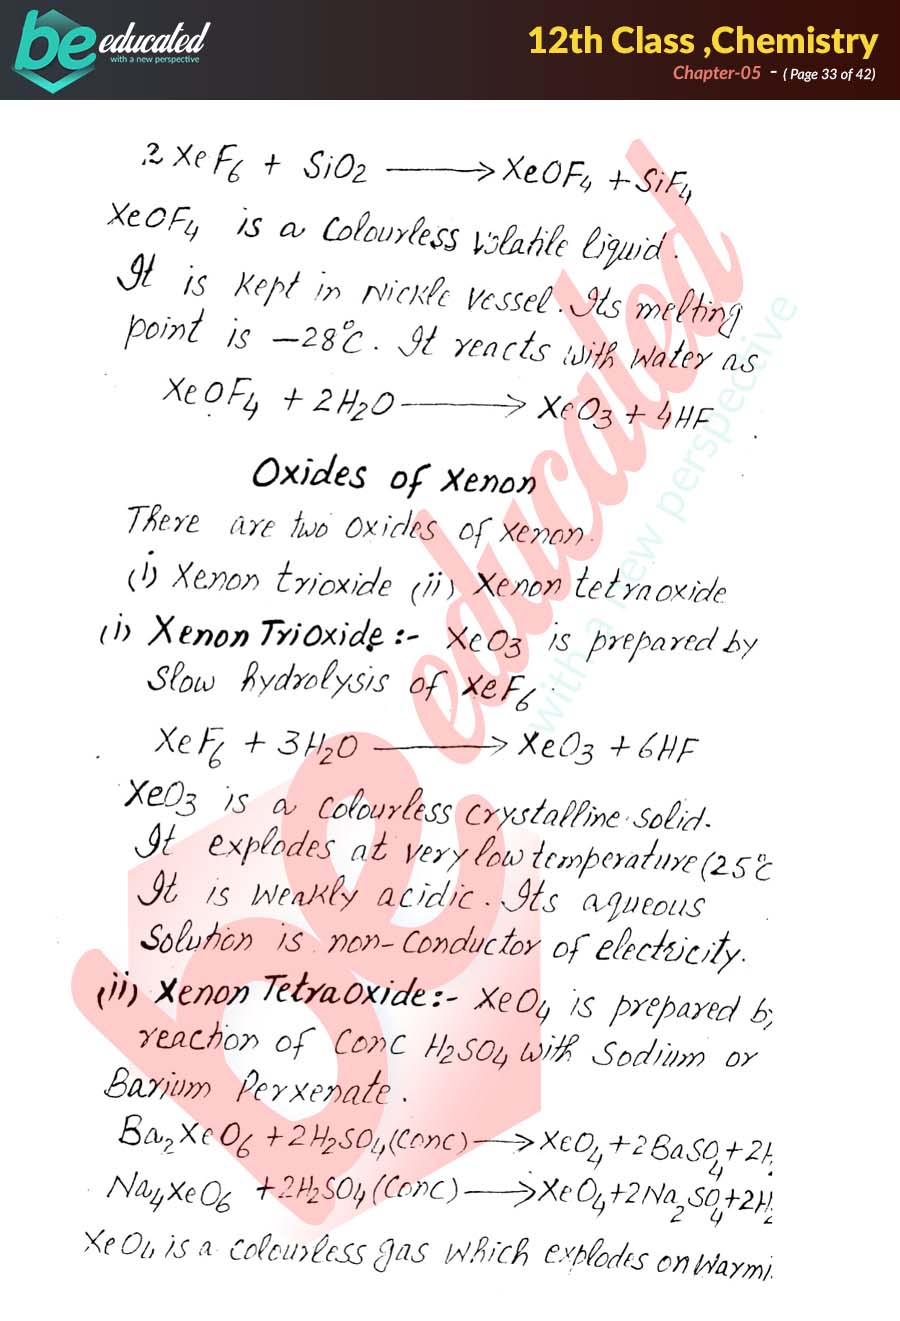 be educated
with a new perspective
12th Class ,Chemistry
Chapter-05 - ( Page 33 of 42)
2 XeF6 + SiO2 ⟶ XeOF4 + SiF4
XeOF4 is a Colourless volatile liquid.
It is kept in Nickle vessel. Its melting
point is –28°C. It reacts with water as
XeOF4 + 2H2O ⟶ XeO3 + 4HF
Oxides of Xenon
There are two oxides of xenon.
(i) Xenon trioxide (ii) Xenon tetraoxide
(i) Xenon Trioxide :- XeO3 is prepared by
slow hydrolysis of XeF6.
XeF6 + 3H2O ⟶ XeO3 + 6HF
XeO3 is a colourless crystalline solid.
It explodes at very low temperature (25°C
It is weakly acidic. Its aqueous
Solution is non-conductor of electricity.
(ii) Xenon Tetraoxide :- XeO4 is prepared b
reaction of Conc H2SO4 with Sodium or
Barium Perxenate.
Ba2XeO6 + 2H2SO4 (Conc) ⟶ XeO4 + 2BaSO4 + 2H2
Na4XeO6 + 2H2SO4 (Conc) ⟶ XeO4 + 2Na2SO4 + 2H2
XeO4 is a colourless gas which explodes on warmi
be educated
with a new perspective